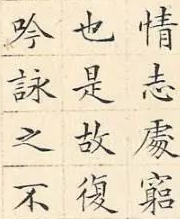 情志處窮
也是故復
吟詠之不